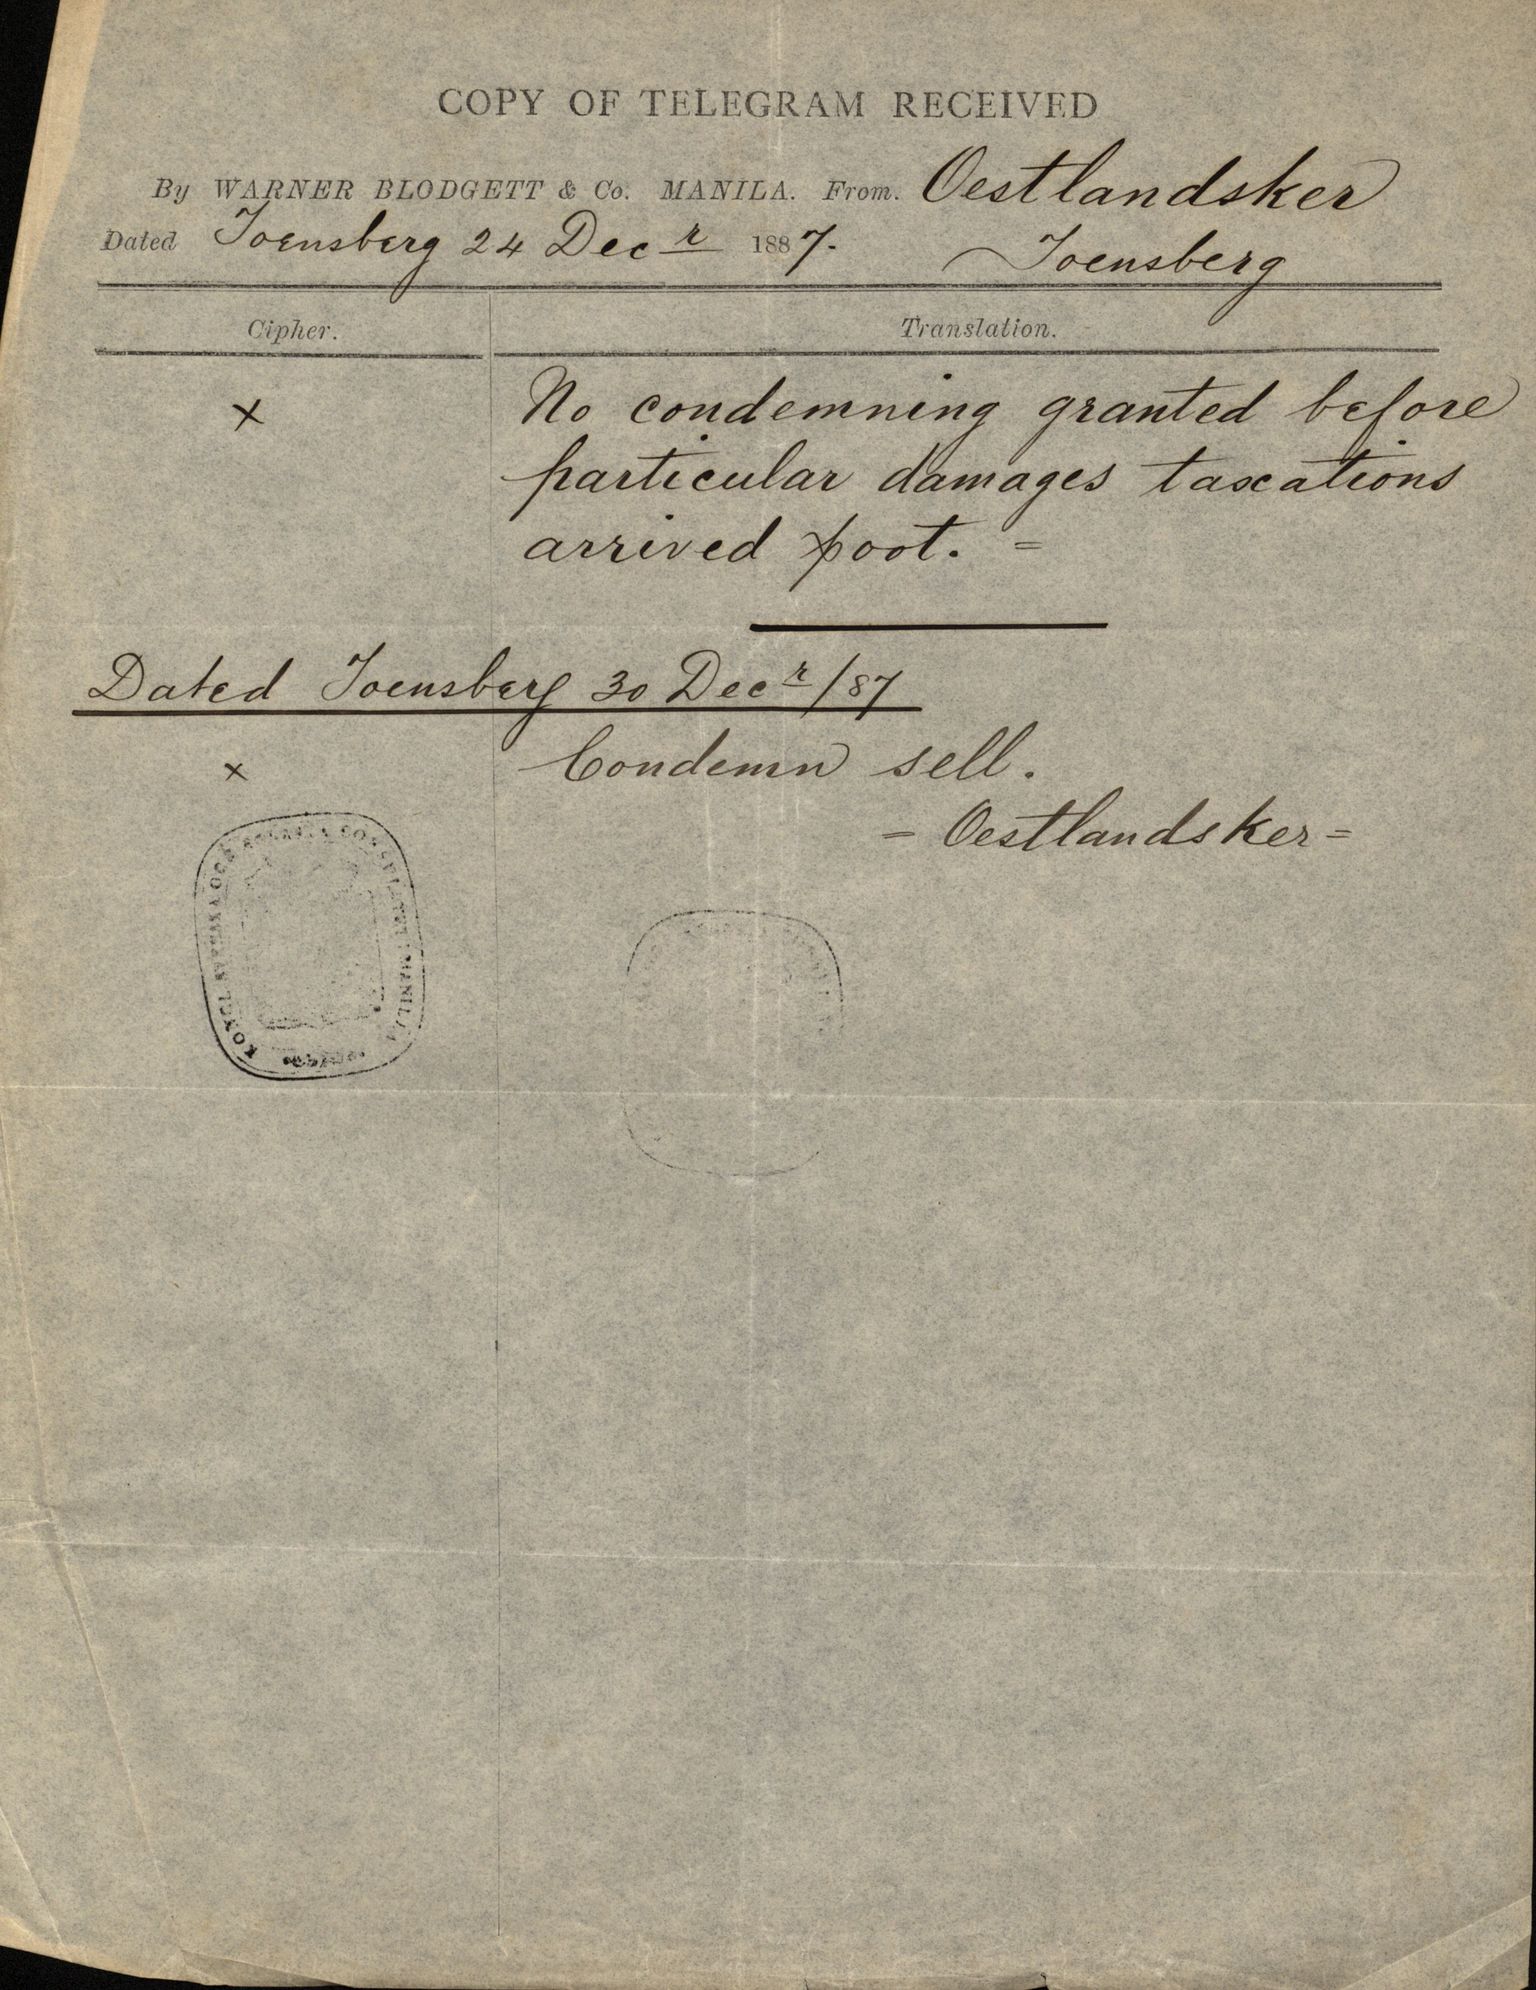 COPY OF TELEGRAM RECEIVED
By WARNER BLODGETT & Co. MANILA. From. Oestlandsker
Dated Toensberg 24 Decr 1887. Toensberg
Cipher. Translation.
x No condemning granted before
particular damages taxations
arrived poot. =
Dated Toensberg 30 Decr/87
x Condemn sell.
= Oestlandsker =
KONGL. SVENSKA OCH NORSKA CONSULATET MANILLA